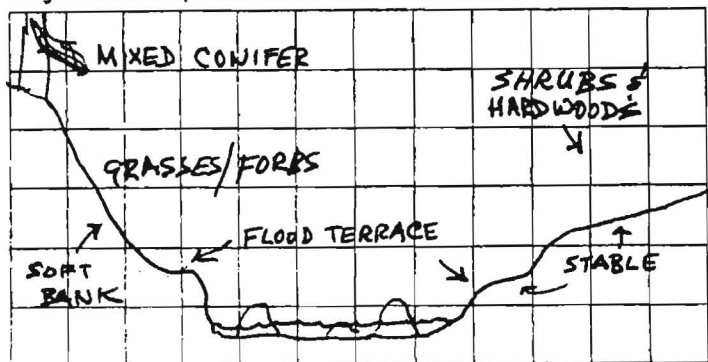 MIXED CONIFER
SHRUBS &
HARDWOODS
GRASSES/FORBS
FLOOD TERRACE
SOFT
BANK
STABLE